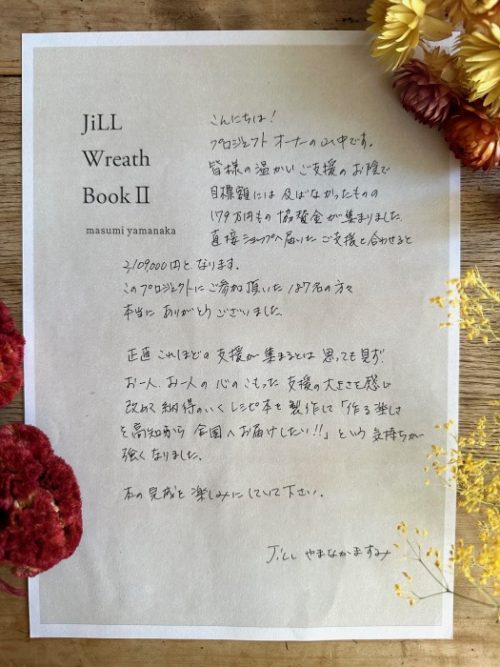 JiLL
Wreath
Book II
masumi yamanaka
こんにちは!
プロジェクトオーナーの山中です。
皆様の温かいご支援のお陰で
目標額には及ばなかったものの
179万円もの協賛金が集まりました。
直接ショップへ届いたご支援と合わせると
2,109,000円となります。
このプロジェクトにご参加頂いた187名の方々
本当にありがとうございました。
正直これほどの支援が集まるとは思っても見ず!
お一人、お一人の心のこもった支援の大きさを感じ
改めて納得のいくレシピ本を製作して「作る楽しさ
を高知から全国へお届けしたい!!」という気持ちが
強くなりました。
本の完成を楽しみにしていて下さい。
JiLL やまなかますみ